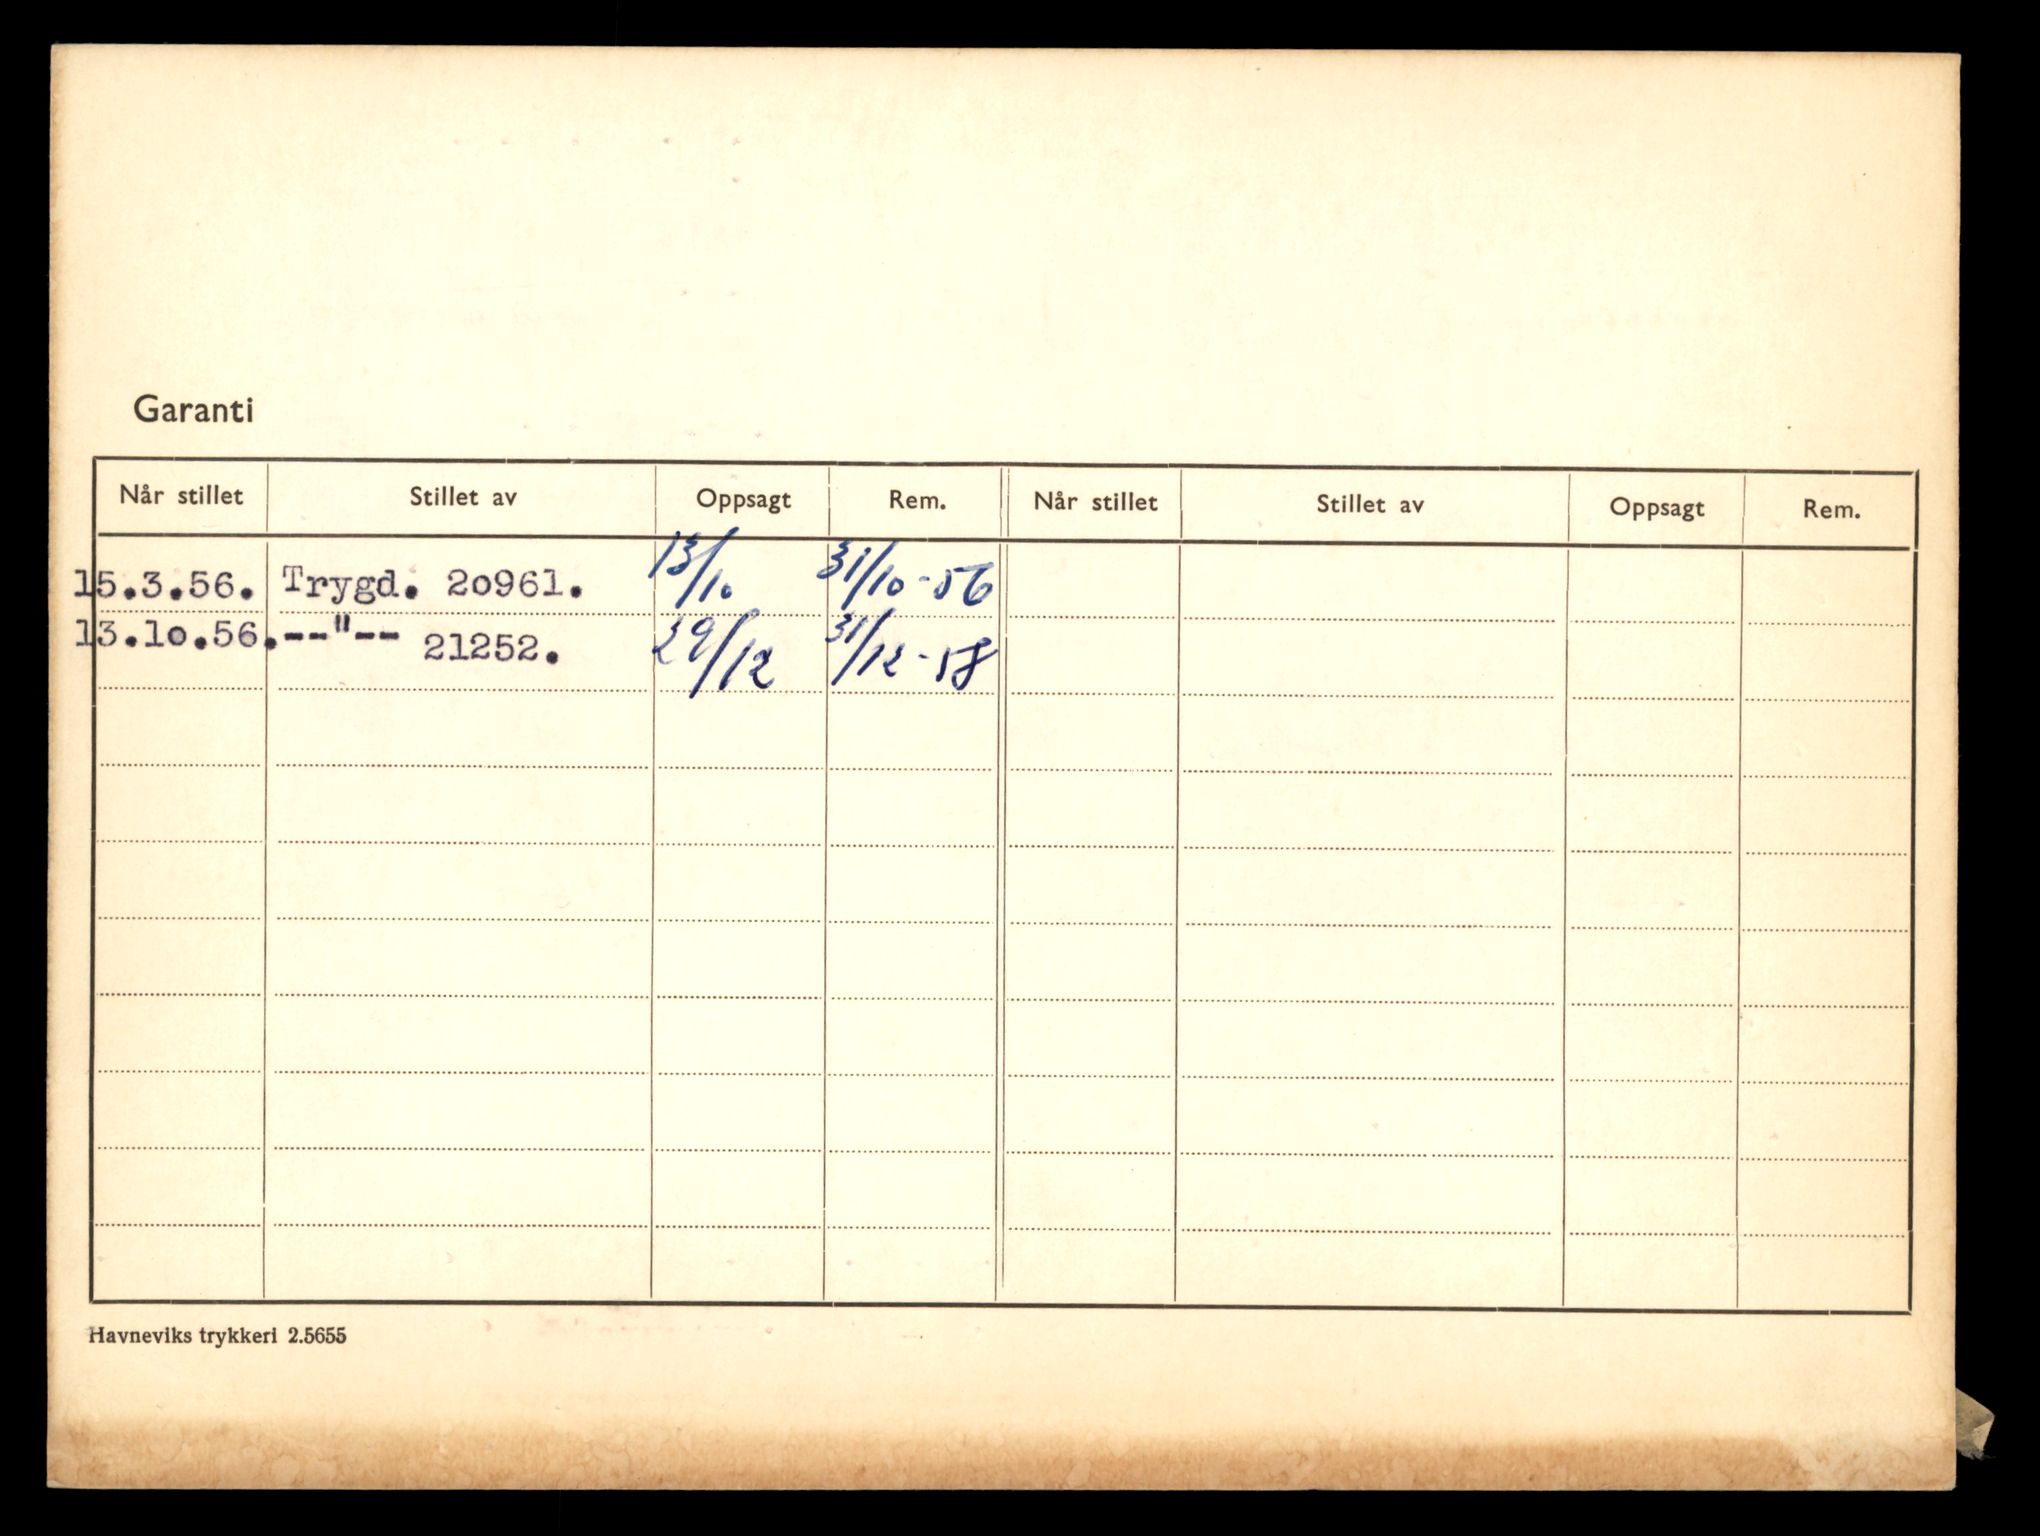 Garanti
Når stillet Stillet av Oppsagt Rem. Når stillet Stillet av Oppsagt Rem.
15.3.56. Trygd. 20961. 13/10 31/10-56
13.10.56. --"-- 21252. 29/12 31/12-58
Havneviks trykkeri 2.5655